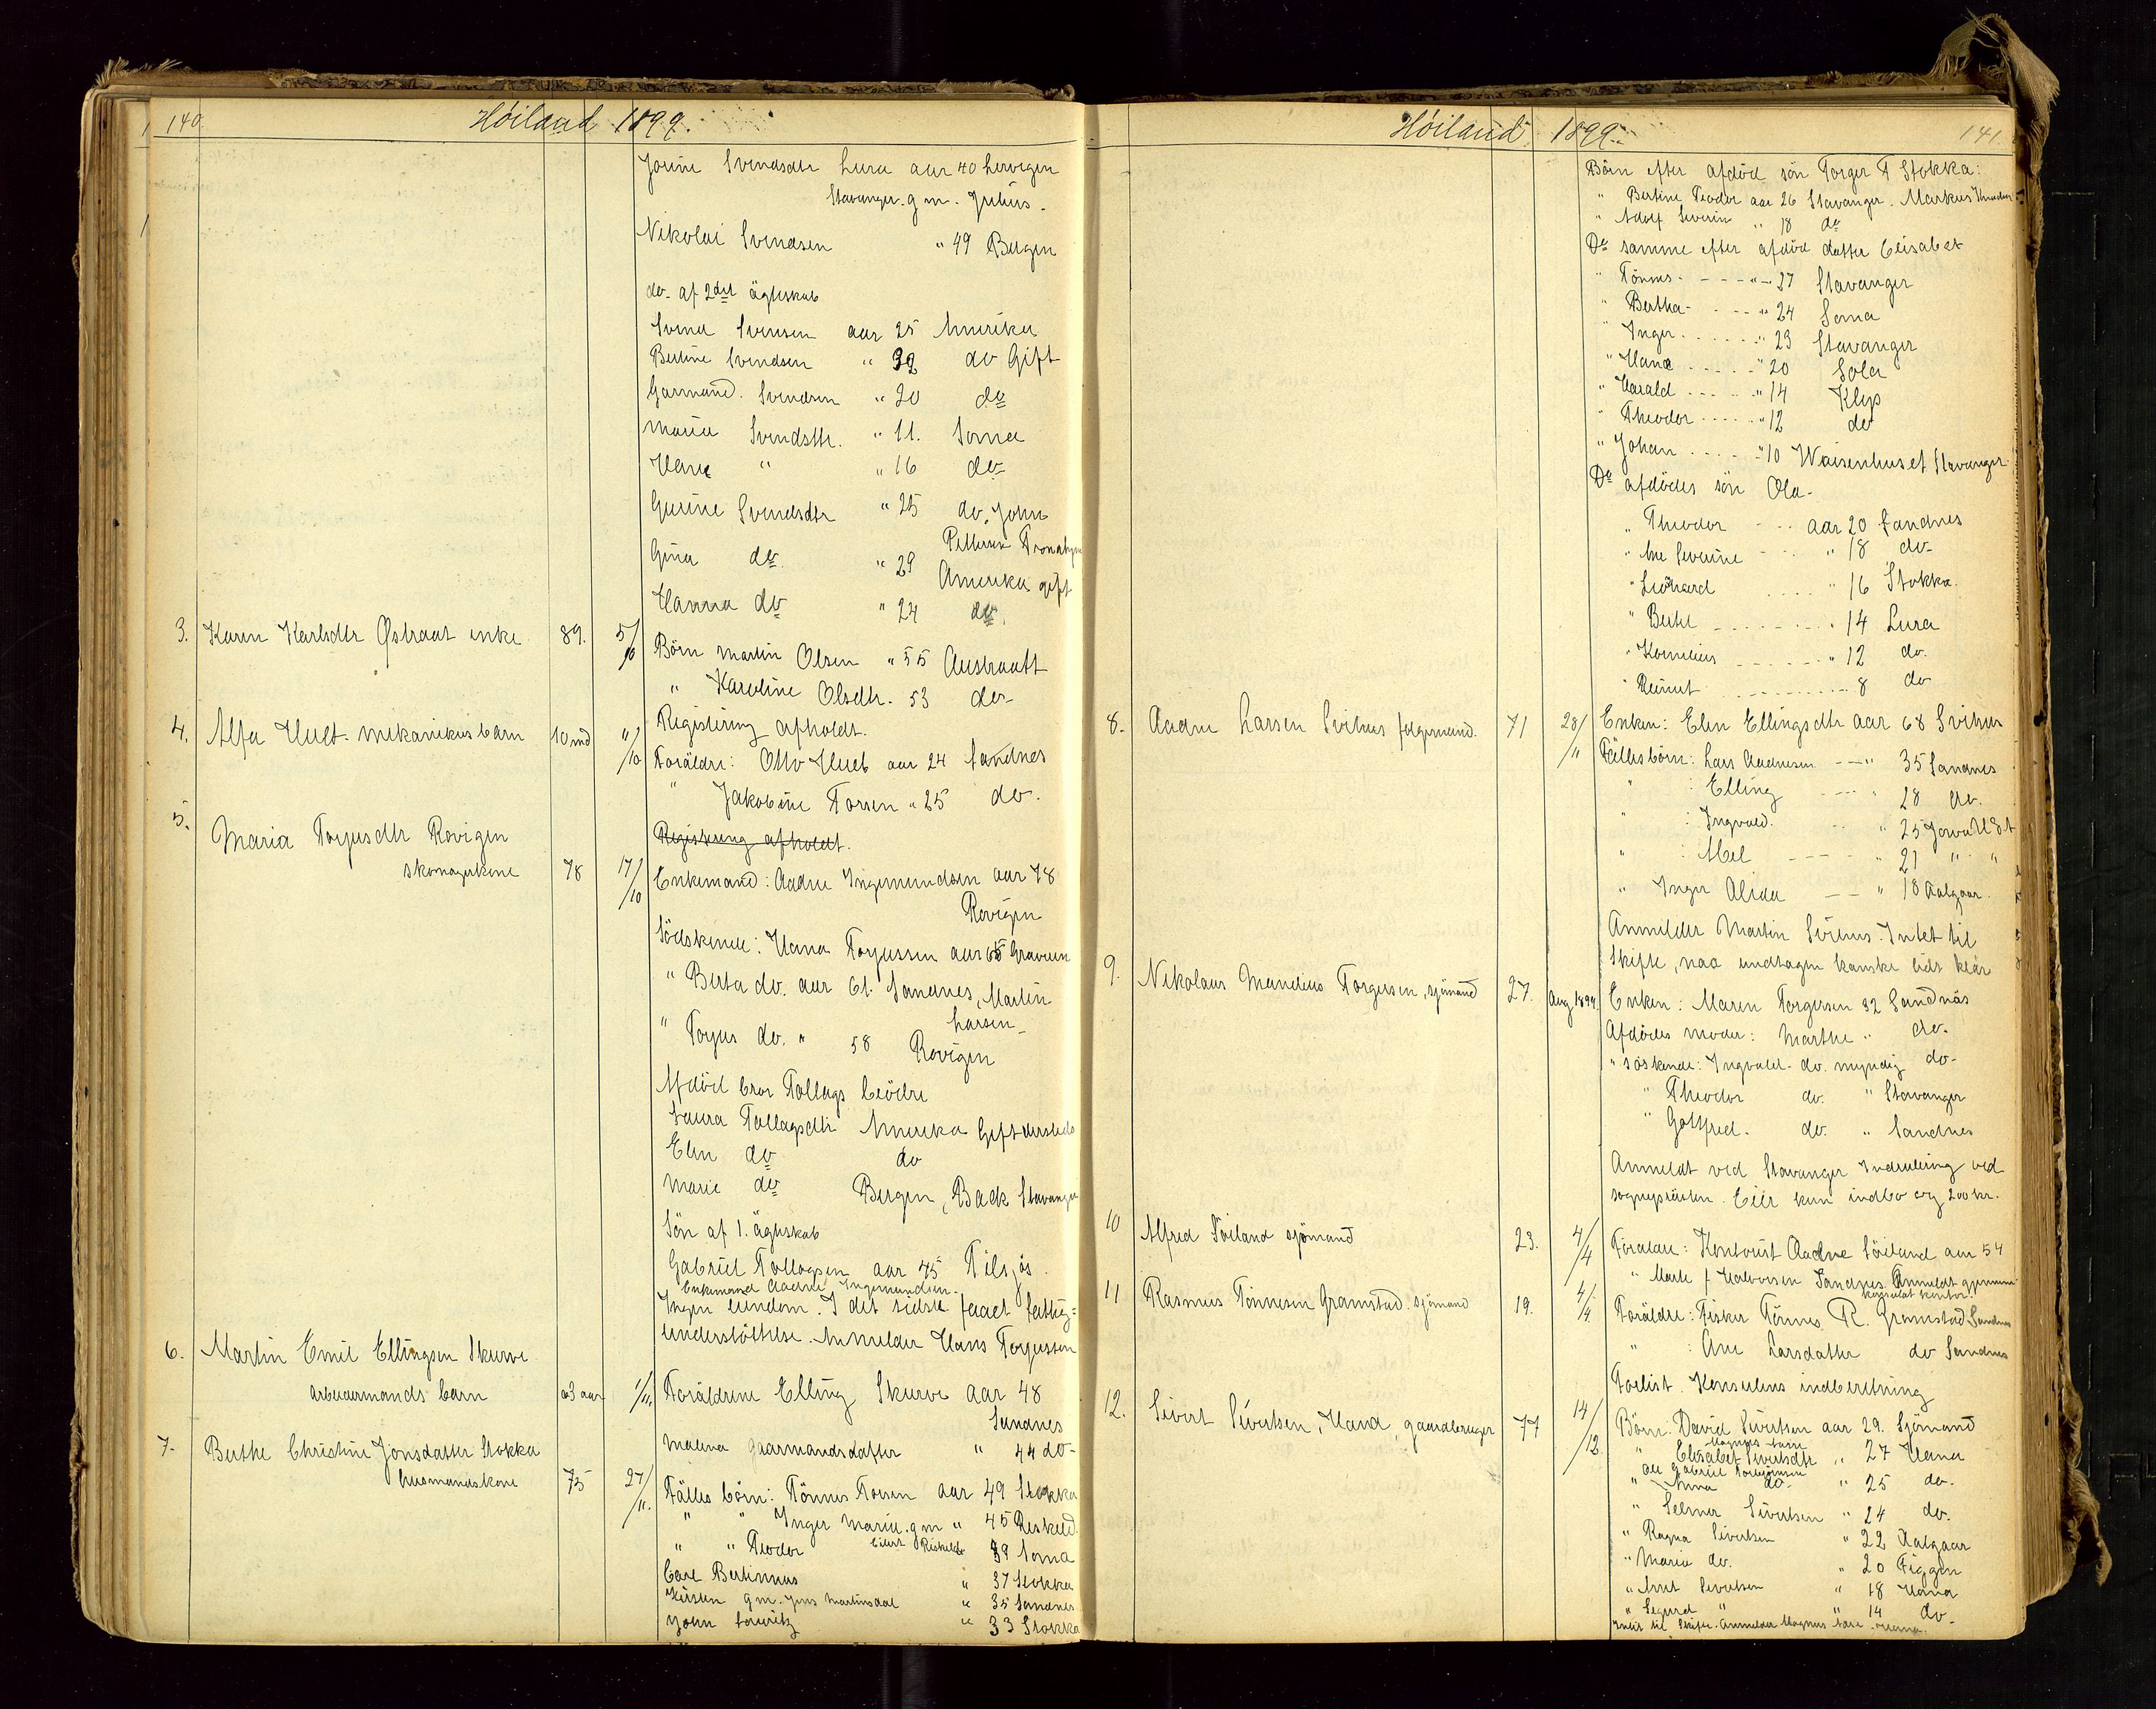 140.
Høiland 1899.
Jorine Svendsdtr Lura aar 40 Lervigen
Stavanger. g m. Julius.
Nikolai Svendsen " 49 Bergen
do. af 2det ägteskab
Svend Svensen aar 25 Amerika
Bertine Svendsen " 32 do Gift
Garmand. Svendsen " 20 do
Maria Svendsdtr. " 11. Soma
Hana " " 16 do
Gurine Svendsdtr " 25 do. John
Pettersen
Gina do. " 29 Amerika gift
Hanna do " 24 do.
3. Karen Karlsdtr Østraat enke 89. 5/10 Börn Martin Olsen " 55 Austraatt
" Karoline Olsdtr. 53 do
Registering afholdt.
4. Alfa Huet. mekanikus barn 10 md 11/10 Foräldre: Otto Huet aar 24 Sandnes
" Jakobine Torsen " 25 do.
Registering afholdt.
5. Maria Torjusdtr Rovigen
skomagerkone 78 17/10 Enkemand: Aadne Ingemundsen aar 78
Rovigen
Södskende: Hana Torjussen aar 65 Graveren
" Berta do. aar 61. Sandnes, Martin
Larsen
" Torjus do. " 58 Rovigen
Afdöd bror Tollags
Laura Tollagsdtr Amerika Gift
Elen do do
Marie do Bergen, Back Stavanger
Sön af 1. ägteskab
Gabriel Tollagsen aar 45 Tilsjös
Enkemand Aadne Ingemundsen
Ingen eiendom. I det sidste faaet fattig=
understöttelse. Anmelder Hans Torjussen
6. Martin Emil Ellingsen Skurve
arbeidermands barn 3 aar 1/11. Foräldrene Elling Skurve aar 48
Sandnes
Malena Gaarmandsdatter " 44 do
7. Berthe Christine Jonsdatter Stokka
husmandskone 75 27/11. Fälles börn: Tönnes Torsen aar 49 Stokka
" " Inger Marie. g m " 45 Reskeld
Eilert Riskeld
" " Teodor 39 Soma
Carl Bertinius " 37 Stokka
Kirsten g m. Jens Martinsdal " 35 Sandnes
John Louritz " 33 Stokka
Høiland 1899.
141.
Börn efter afdöd sön Torger T Stokka:
" Bertine Teodor aar 26 Stavanger. Markus Knudsen
" Adolf Severin " 18 do
Do samme efter afdöd datter Elisabet
" Tönnes " 27 Stavanger
" Bertha " 24 Soma
" Inger " 23 Stavanger
" Hana " 20 Sola
" Harald " 14 Klep
" Theodor " 12 do
" Johan " 10 Waisenhuset Stavanger
Do afdödes sön Ola.
" Theodor aar 20 Sandnes
" Ane Severine " 18 do
" Leonard " 16 Stokka
" Bertel " 14 Lura
" Kornelius " 12 do.
" Reinert 8 do
8. Aadne Larsen Svihus folgemand. 71 28/11 Enken: Elen Ellingsdtr aar 68 Svihus
Fällesbörn: Lars Aadnesen " 35 Sandnes
" : Elling " 28 do.
" : Ingvald. " 25
" : Abel " 21 " "
" Inger Alida " 18 Aalgaar.
Anmelder Martin Svihus. Intet til
Skifte, naa undtagen kanske lidt klär
9. Nikolaus Mandius Torgersen, sjömand 27. Aug. 1899. Enken: Maren Torgersen 32 Sandnäs
Afdödes moder: Marthe " do.
" söskende: Ingvald. do. myndig do.
" Theodor do. " Stavanger
" Gottfred. do. " Sandnes
Anmeldt ved Stavanger Indrulering ved
sognepresten. Eier kun indbo og 200 kr.
10 Alfred Söiland sjömand 23. 4/4 Foräldre: Kontorist Aadne Söiland aar 54
" Marte f Halvorsen Sandnes. Anmeldt gjennem
konsulat kontor.
11 Rasmus Tönnesen Gramstad. sjömand 19. 4/4. Foräldre: Fisker Tönnes R. Gramstad Sandnes
" : Ane Larsdatter do Sandnes
Forlist. Konsulens indberetning
12. Sivert Sivertsen, Hand, gaardbruger 77 14/12. Börn: David Sivertsen aar 29. Sjömand
Magnus
" Elisabet Sivertsdtr " 27 Hana
Ole Gabriel Torbjörnsen
" Anna do. " 25 do.
" Selmer Sivertsen " 24 do.
" Ragna Sivertsen " 22 Aalgaar
" Maria do. " 20 Figgen
" Arnt Sivertsen " 18 Hana
" Sigurd " " 14 do.
Intet til Skifte. Anmelder Magnus